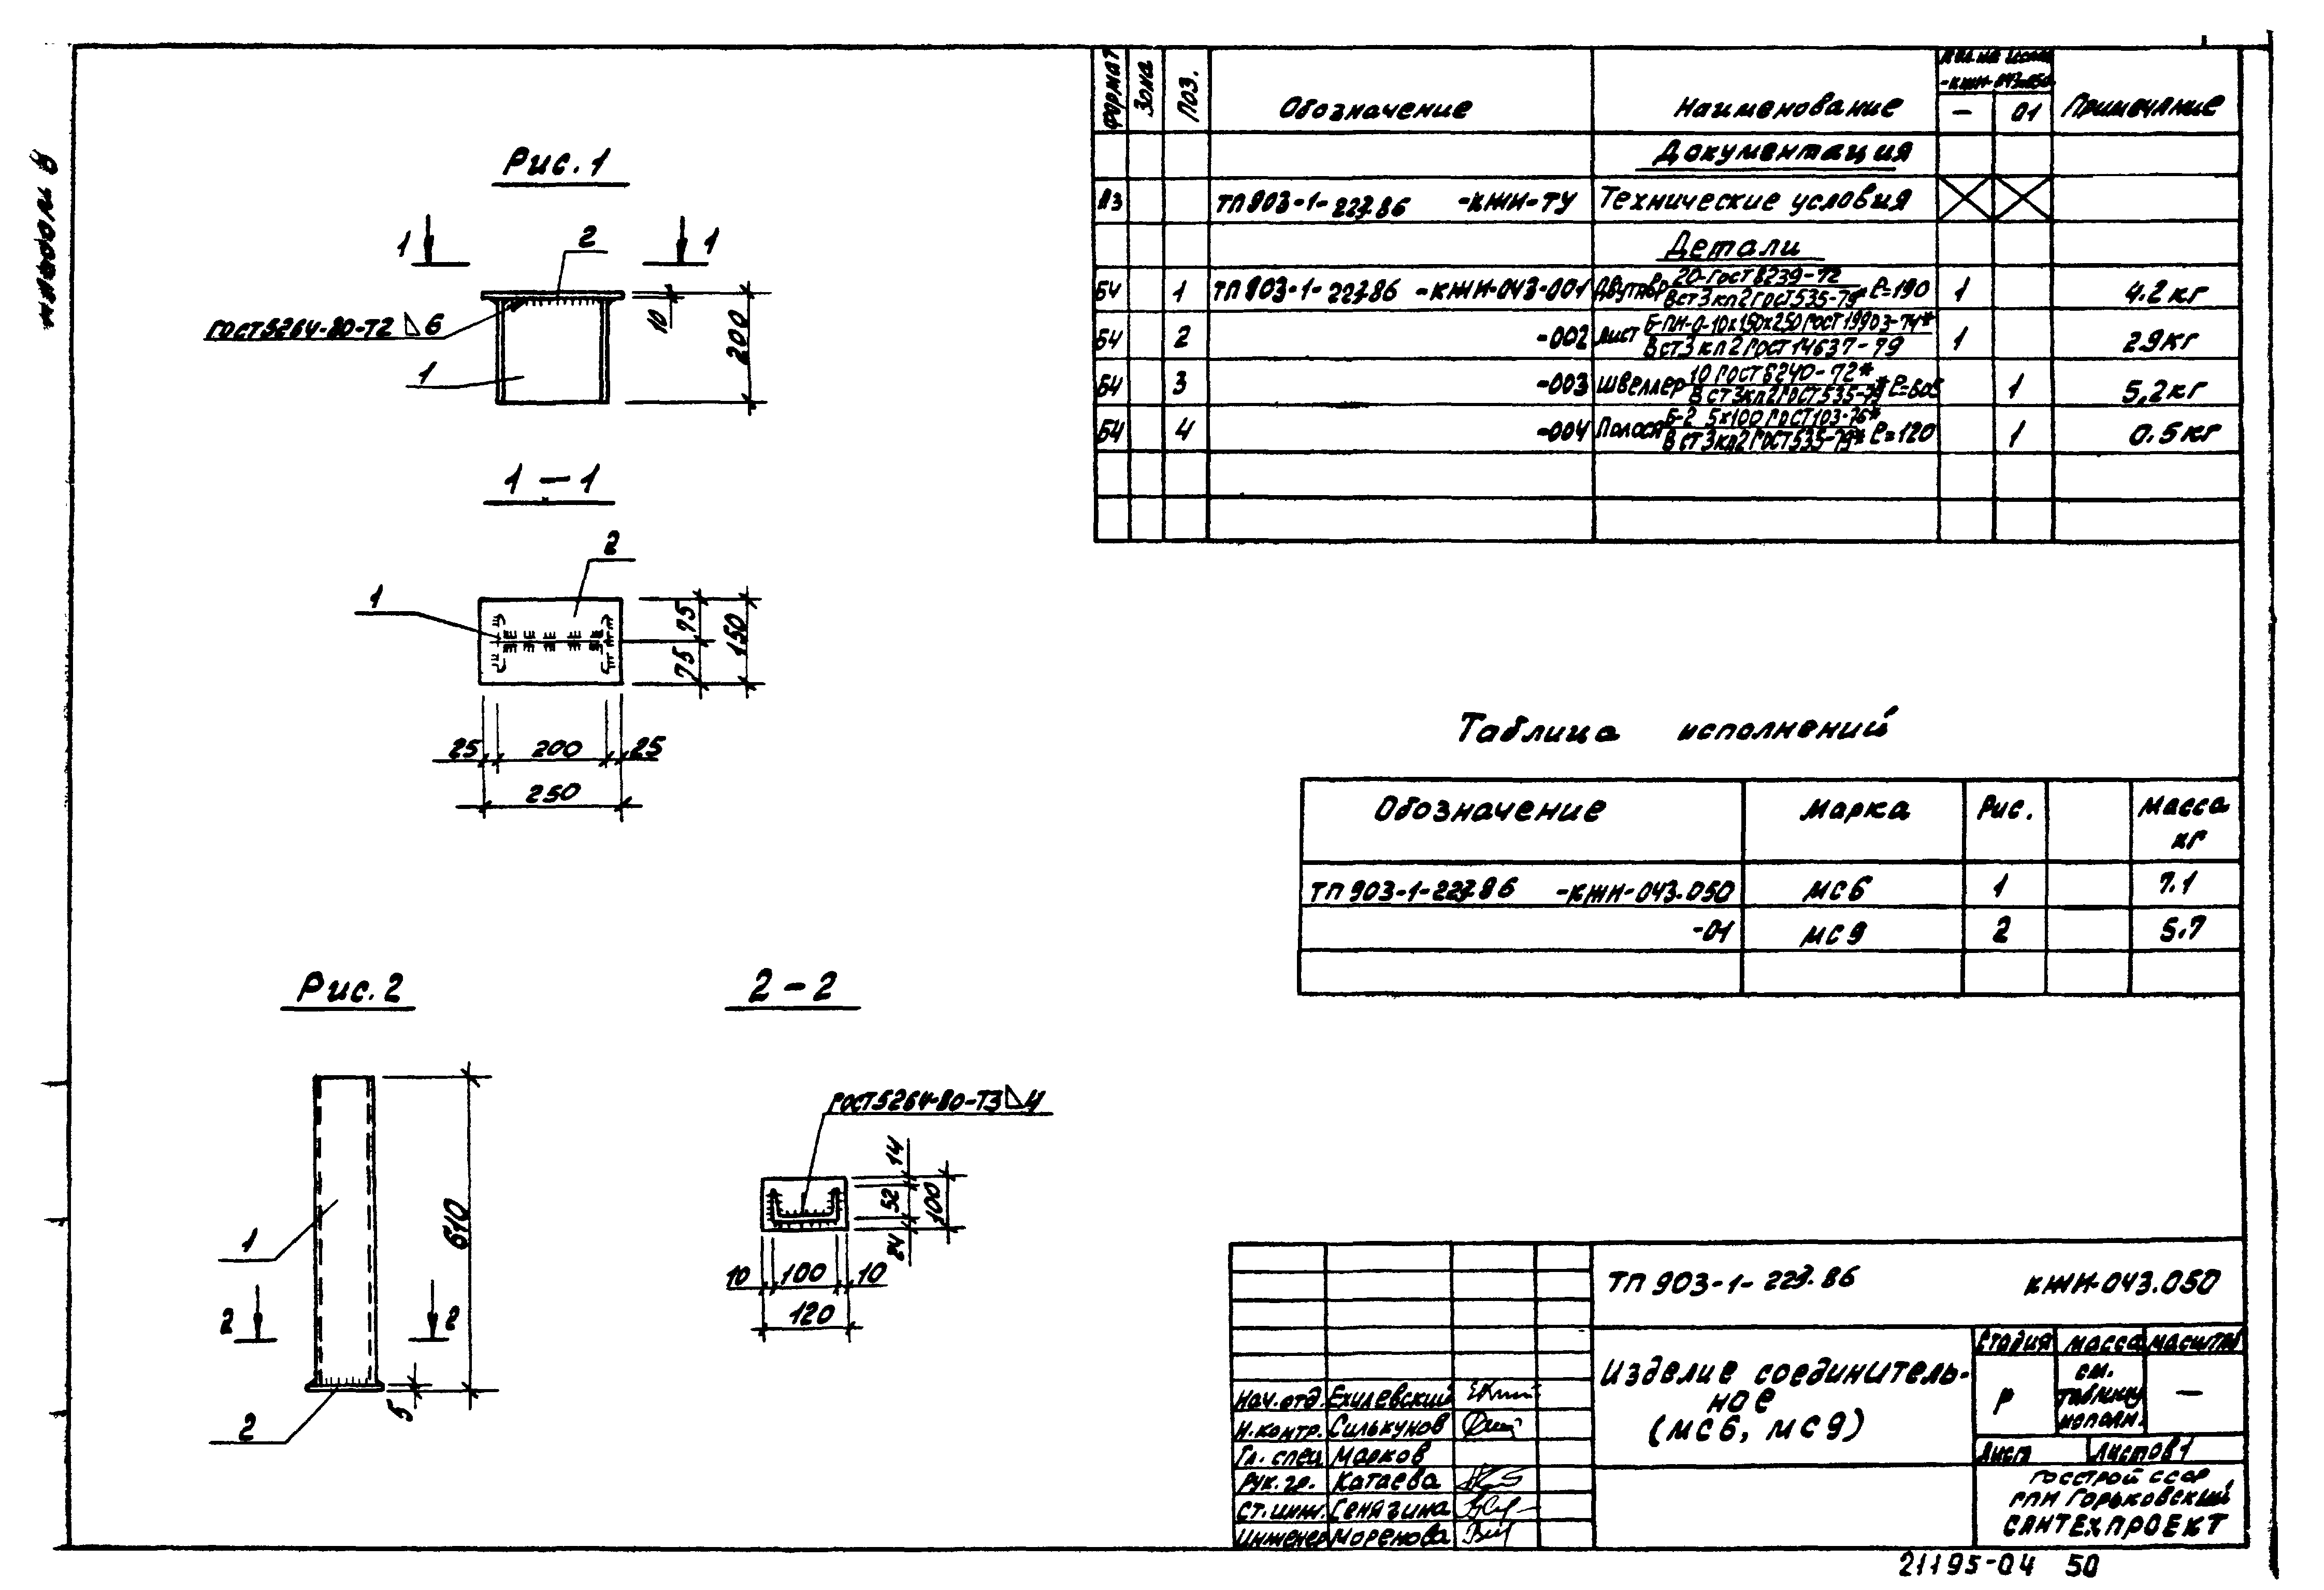 Альбом 9
Рис. 1
1 1
2
ГОСТ 5264-80-Т2 ◺ 6
1
10
200
1 – 1
2
1
75
75
150
25 200 25
250
Рис. 2
1
2 2
610
5
2
2 – 2
ГОСТ 5264-80-Т3 ◺ 4
14
52
24
100
10 100 10
120
Формат Зона Поз. Обозначение Наименование Кол. на исполн. -КЖИ-043.050 Примечание
– 01
Документация
А3 ТП 903-1-227.86 -КЖИ-ТУ Технические условия
Детали
Б4 1 ТП 903-1-227.86 -КЖИ-043-001 Двутавр 20-ГОСТ 8239-72 / ВСт3кп2 ГОСТ 535-79* ℓ=190 1 4.2 кг
Б4 2 -002 Лист Б-ПН-0-10х150х250 ГОСТ 19903-74* / ВСт3кп2 ГОСТ 14637-79 1 2.9 кг
Б4 3 -003 Швеллер 10 ГОСТ 8240-72* / ВСт3кп2 ГОСТ 535-79* ℓ=605 1 5,2 кг
Б4 4 -004 Полоса Б-2 5х100 ГОСТ 103-76* / ВСт3кп2 ГОСТ 535-79* ℓ=120 1 0.5 кг
Таблица исполнений
Обозначение Марка Рис. Масса кг
ТП 903-1-227.86 -КЖИ-043.050 МС6 1 7.1
-01 МС9 2 5.7
ТП 903-1-227.86 КЖИ-043.050
Изделие соединитель-
ное
(МС6, МС9)
Стадия Масса Масштаб
Р см. таблицу исполн. –
Лист Листов 1
Госстрой СССР
ГПИ Горьковский
Сантехпроект
Нач. отд. Ехилевский
Н. контр. Силькунов
Гл. спец. Марков
Рук. гр. Катаева
Ст. инж. Сенягина
Инженер Моренова
21195-04 50